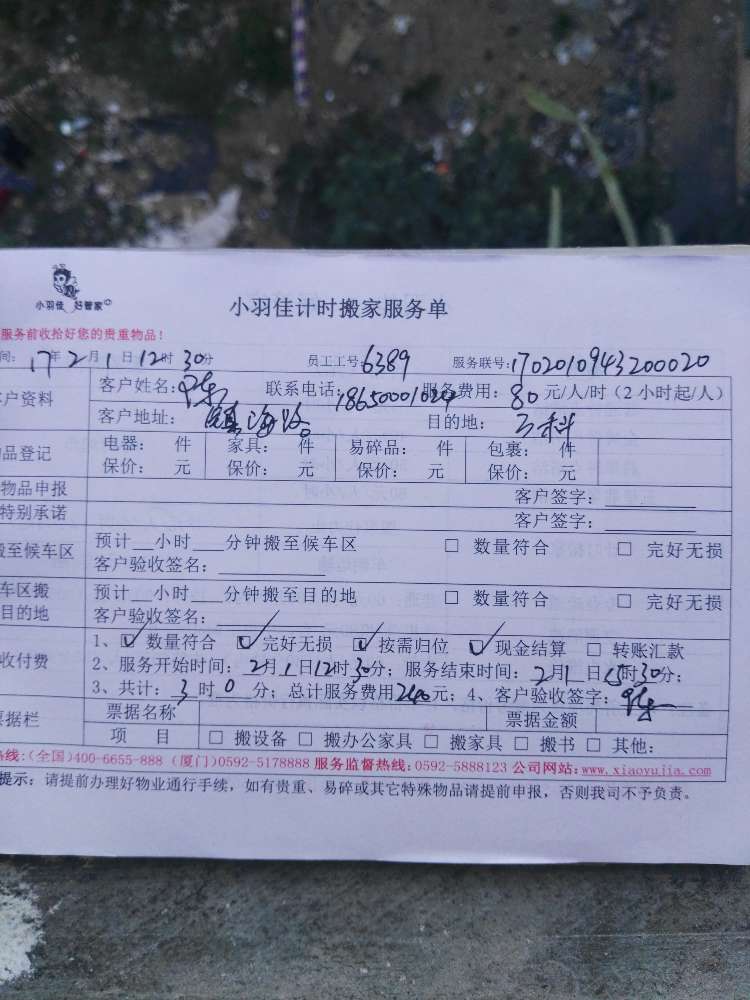 小羽佳 好管家
小羽佳计时搬家服务单
服务前收拾好您的贵重物品！
间：17年2月1日12时30分 员工工号：6389 服务联号：1702010943200020
户资料 客户姓名： 联系电话：18650001024 服务费用：80元/人/时（2小时起/人）
客户地址：镇海路 目的地：
品登记 电器： 件 家具： 件 易碎品： 件 包裹： 件
保价： 元 保价： 元 保价： 元 保价： 元
物品申报 客户签字：
特别承诺 客户签字：
搬至候车区 预计__小时___分钟搬至候车区 □ 数量符合 □ 完好无损
客户验收签名：
车区搬 预计__小时___分钟搬至目的地 □ 数量符合 □ 完好无损
目的地 客户验收签名：
收付费 1、☑ 数量符合 ☑ 完好无损 ☑ 按需归位 ☑ 现金结算 □ 转账汇款
2、服务开始时间：2月1日12时30分；服务结束时间：2月1日15时30分；
3、共计：3时0分；总计服务费用240元；4、客户验收签字：
票据栏 票据名称 票据金额
项 目 □ 搬设备 □ 搬办公家具 □ 搬家具 □ 搬书 □ 其他：
热线：（全国）400-6655-888（厦门）0592-5178888 服务监督热线：0592-5888123 公司网站：www.xiaoyujia.com
提示：请提前办理好物业通行手续，如有贵重、易碎或其它特殊物品请提前申报，否则我司不予负责。